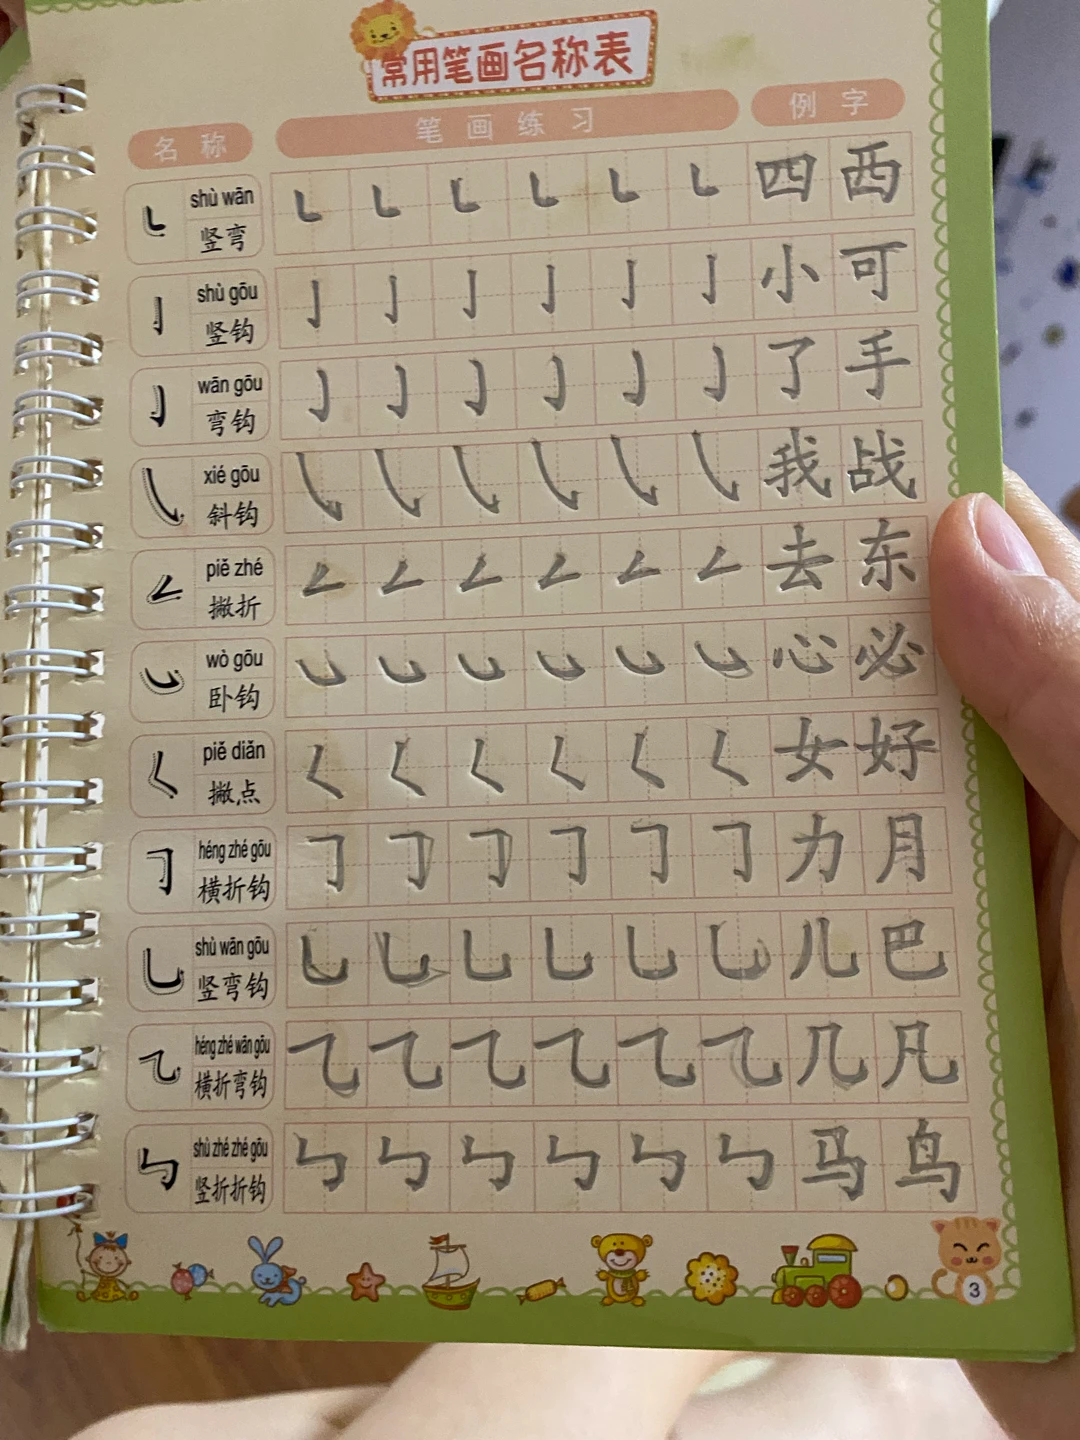 常用笔画名称表
名称 笔画练习 例字
㇄ shù wān 竖弯 ㇄ ㇄ ㇄ ㇄ ㇄ ㇄ 四 西
亅 shù gōu 竖钩 亅 亅 亅 亅 亅 亅 小 可
㇁ wān gōu 弯钩 ㇁ ㇁ ㇁ ㇁ ㇁ ㇁ 了 手
㇂ xié gōu 斜钩 ㇂ ㇂ ㇂ ㇂ ㇂ ㇂ 我 战
㇜ piě zhé 撇折 ㇜ ㇜ ㇜ ㇜ ㇜ ㇜ 去 东
㇃ wò gōu 卧钩 ㇃ ㇃ ㇃ ㇃ ㇃ ㇃ 心 必
㇛ piě diǎn 撇点 ㇛ ㇛ ㇛ ㇛ ㇛ ㇛ 女 好
㇆ héng zhé gōu 横折钩 ㇆ ㇆ ㇆ ㇆ ㇆ ㇆ 力 月
㇟ shù wān gōu 竖弯钩 ㇟ ㇟ ㇟ ㇟ ㇟ ㇟ 儿 巴
㇈ héng zhé wān gōu 横折弯钩 ㇈ ㇈ ㇈ ㇈ ㇈ ㇈ 几 凡
㇉ shù zhé zhé gōu 竖折折钩 ㇉ ㇉ ㇉ ㇉ ㇉ ㇉ 马 鸟
3